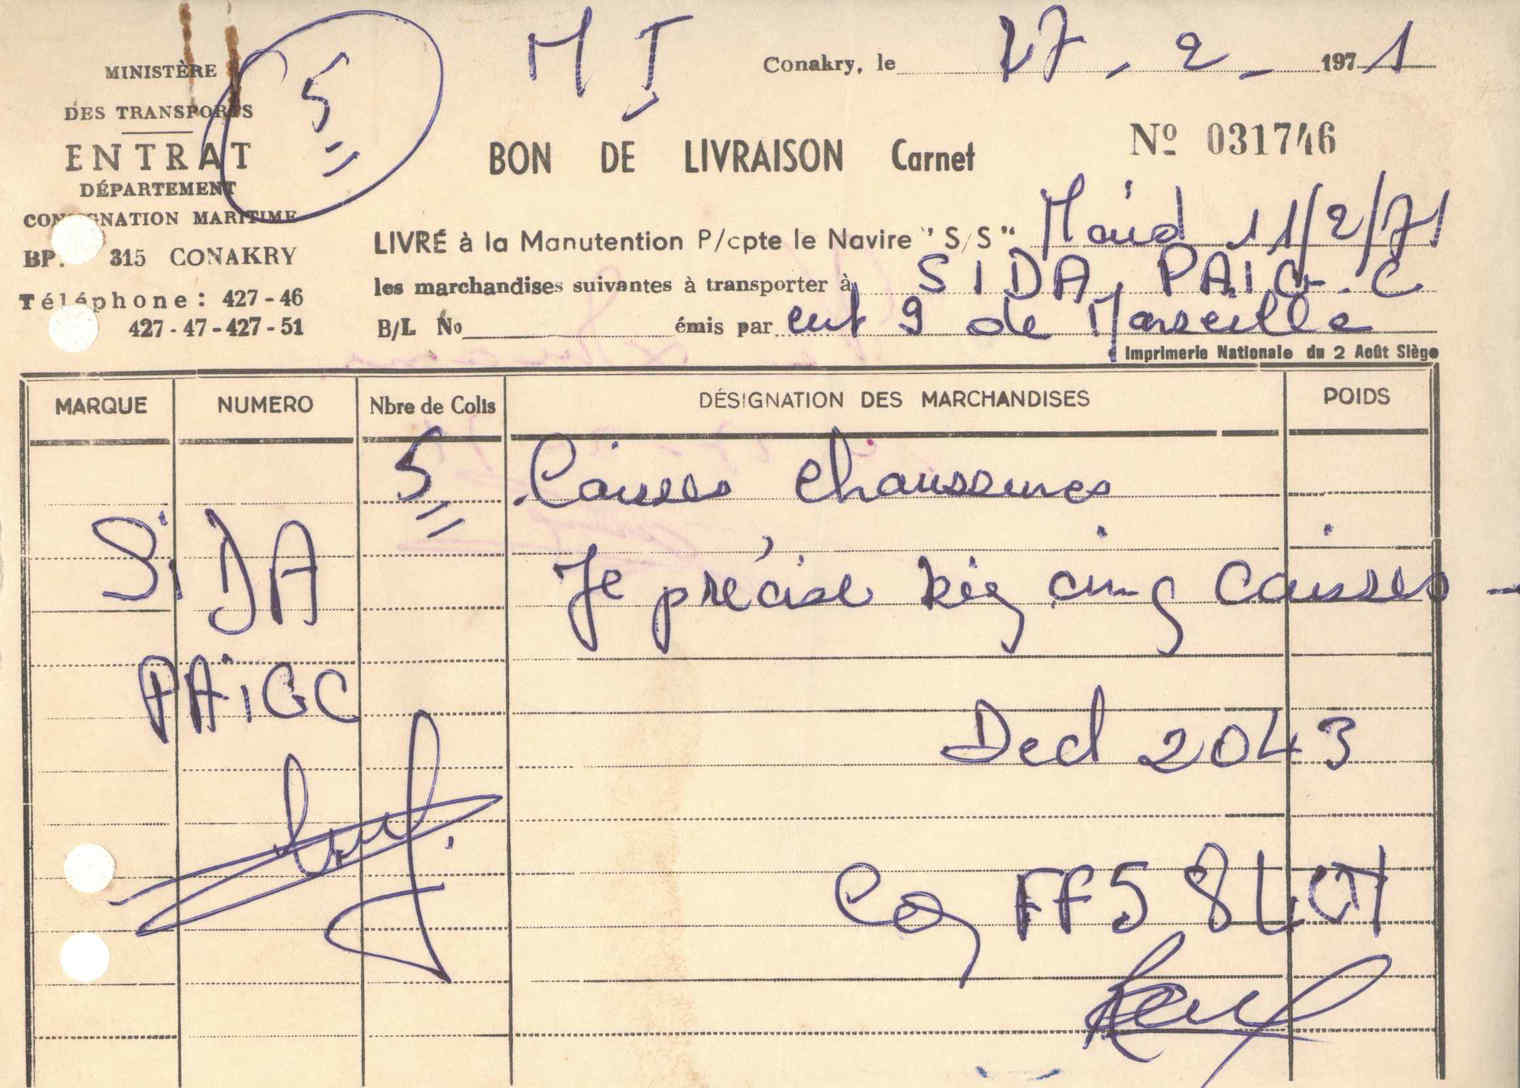 MINISTÈRE
DES TRANSPORTS
ENTRAT
DÉPARTEMENT
CONSIGNATION MARITIME
BP. 315 CONAKRY
Téléphone: 427-46
427-47-427-51
5
M J
Conakry, le 27-2-1971
BON DE LIVRAISON Carnet
Nº 031746
LIVRÉ à la Manutention P/cpte le Navire "S/S" 11/2/71
les marchandises suivantes à transporter à SIDA PAIG.C
B/L No émis par 9 de Marseille
Imprimerie Nationale du 2 Août Siège
MARQUE NUMERO Nbre de Colis DÉSIGNATION DES MARCHANDISES POIDS
5 Caisses chaussures
SiDA Je précise cinq caisses -
PAiGC
Decl 2043